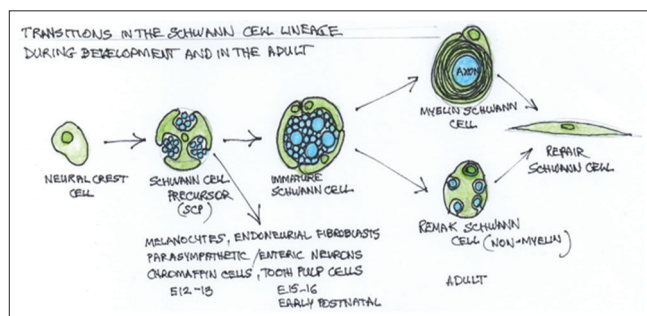 TRANSITIONS IN THE SCHWANN CELL LINEAGE
DURING DEVELOPMENT AND IN THE ADULT
AXON
MYELIN SCHWANN
CELL
NEURAL CREST
CELL
SCHWANN CELL
PRECURSOR
(SCP)
IMMATURE
SCHWANN CELL
REPAIR
SCHWANN CELL
REMAK SCHWANN
CELL (NON-MYELIN)
MELANOCYTES, ENDONEURIAL FIBROBLASTS
PARASYMPATHETIC/ENTERIC NEURONS
CHROMAFFIN CELLS, TOOTH PULP CELLS
E12-13
E15-16
EARLY POSTNATAL
ADULT